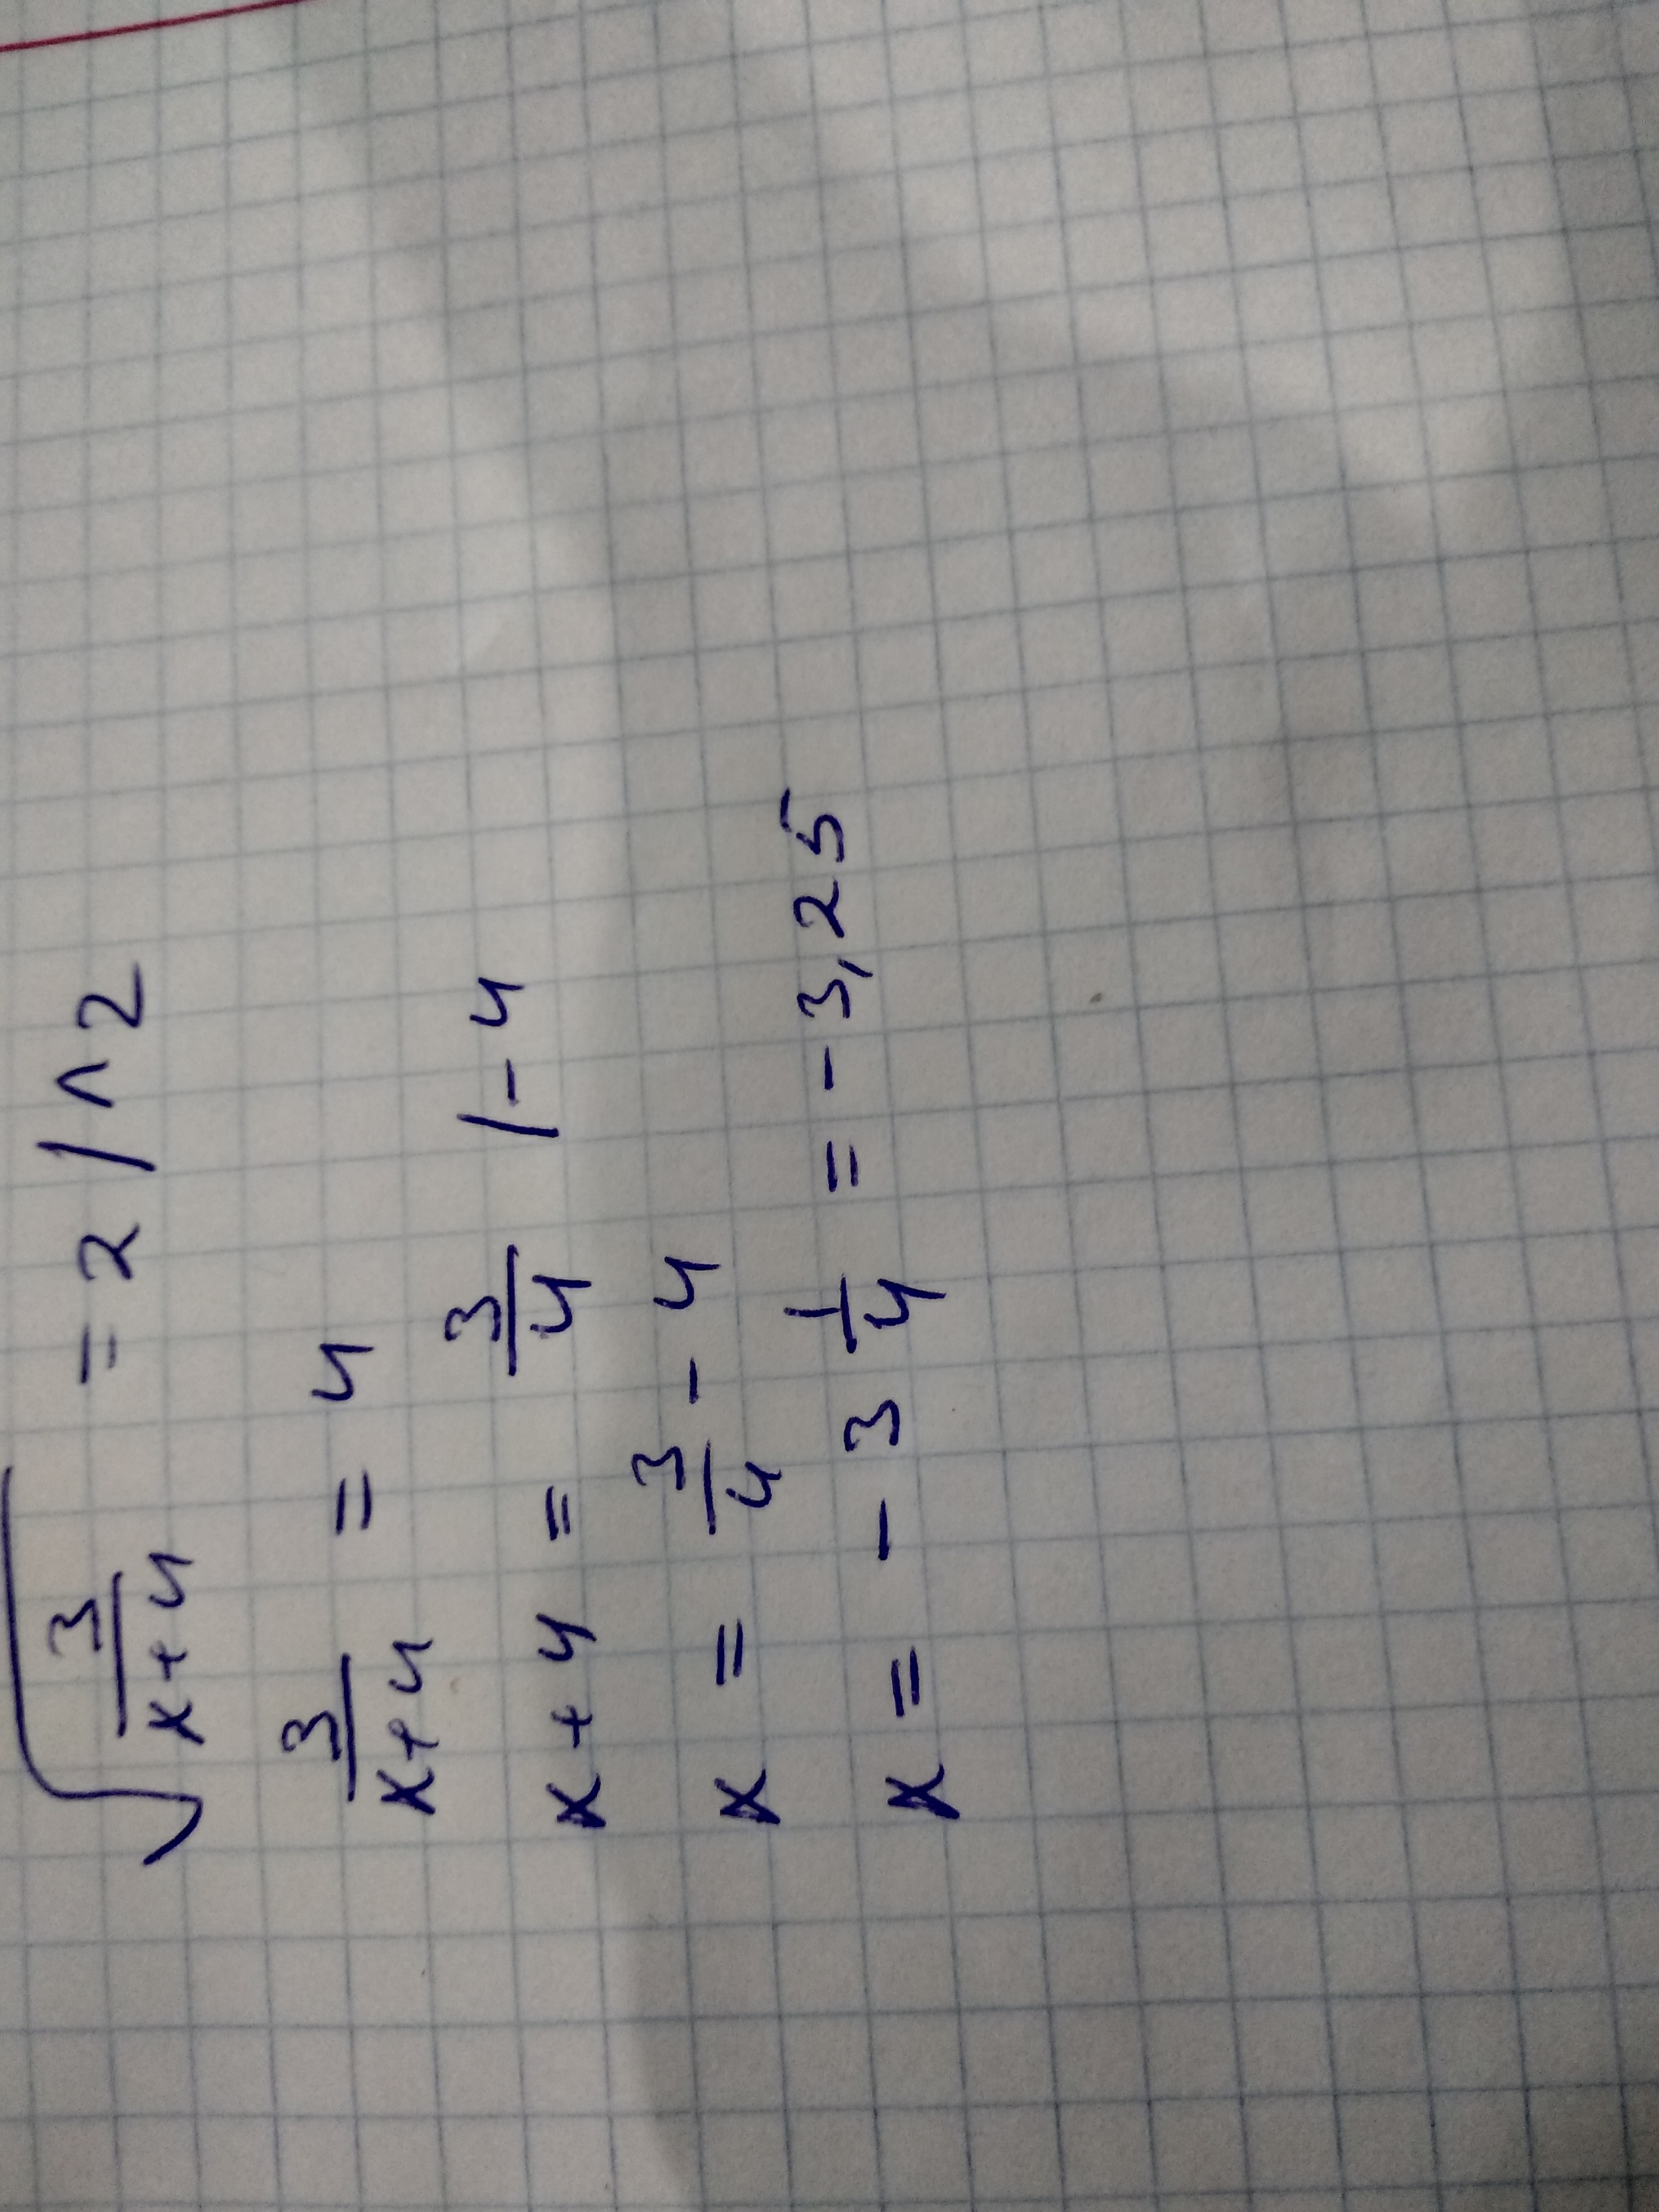 √(3/(x+4)) = 2 / ^ 2
3/(x+4) = 4
x + 4 = 3/4 / - 4
x = 3/4 - 4
x = - 3 1/4 = - 3,25